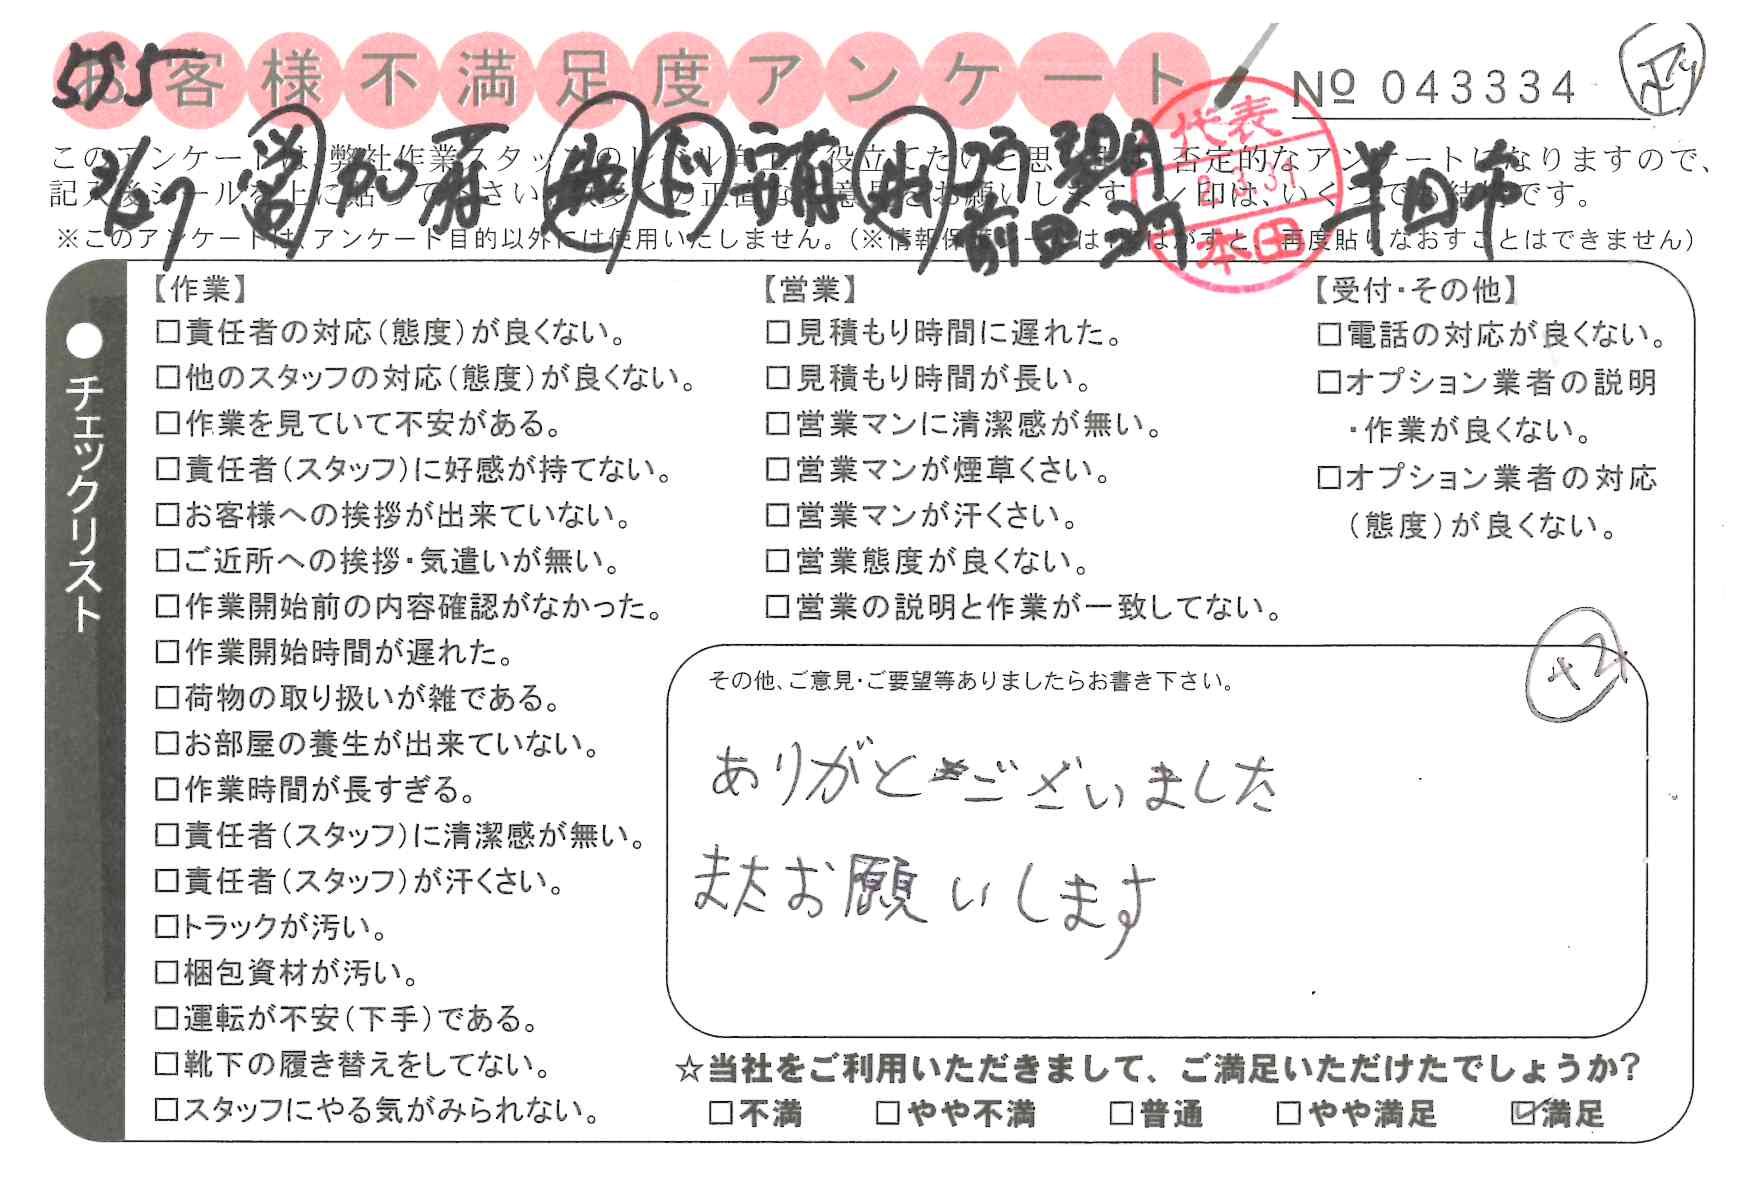 お客様不満足度アンケート
№ 043334
575
代表
2.3.31
本田
半田市
このアンケートは、弊社作業スタッフのレベル向上に役立てたいと思います。否定的なアンケートになりますので、
※このアンケートは、アンケート目的以外には使用いたしません。(※情報保護シールは1度はがすと、再度貼りなおすことはできません)
●チェックリスト
【作業】
□責任者の対応(態度)が良くない。
□他のスタッフの対応(態度)が良くない。
□作業を見ていて不安がある。
□責任者(スタッフ)に好感が持てない。
□お客様への挨拶が出来ていない。
□ご近所への挨拶・気遣いが無い。
□作業開始前の内容確認がなかった。
□作業開始時間が遅れた。
□荷物の取り扱いが雑である。
□お部屋の養生が出来ていない。
□作業時間が長すぎる。
□責任者(スタッフ)に清潔感が無い。
□責任者(スタッフ)が汗くさい。
□トラックが汚い。
□梱包資材が汚い。
□運転が不安(下手)である。
□靴下の履き替えをしてない。
□スタッフにやる気がみられない。
【営業】
□見積もり時間に遅れた。
□見積もり時間が長い。
□営業マンに清潔感が無い。
□営業マンが煙草くさい。
□営業マンが汗くさい。
□営業態度が良くない。
□営業の説明と作業が一致してない。
【受付・その他】
□電話の対応が良くない。
□オプション業者の説明
・作業が良くない。
□オプション業者の対応
(態度)が良くない。
その他、ご意見・ご要望等ありましたらお書き下さい。
ありがとございました
またお願いします
☆当社をご利用いただきまして、ご満足いただけたでしょうか?
□不満 □やや不満 □普通 □やや満足 ☑満足